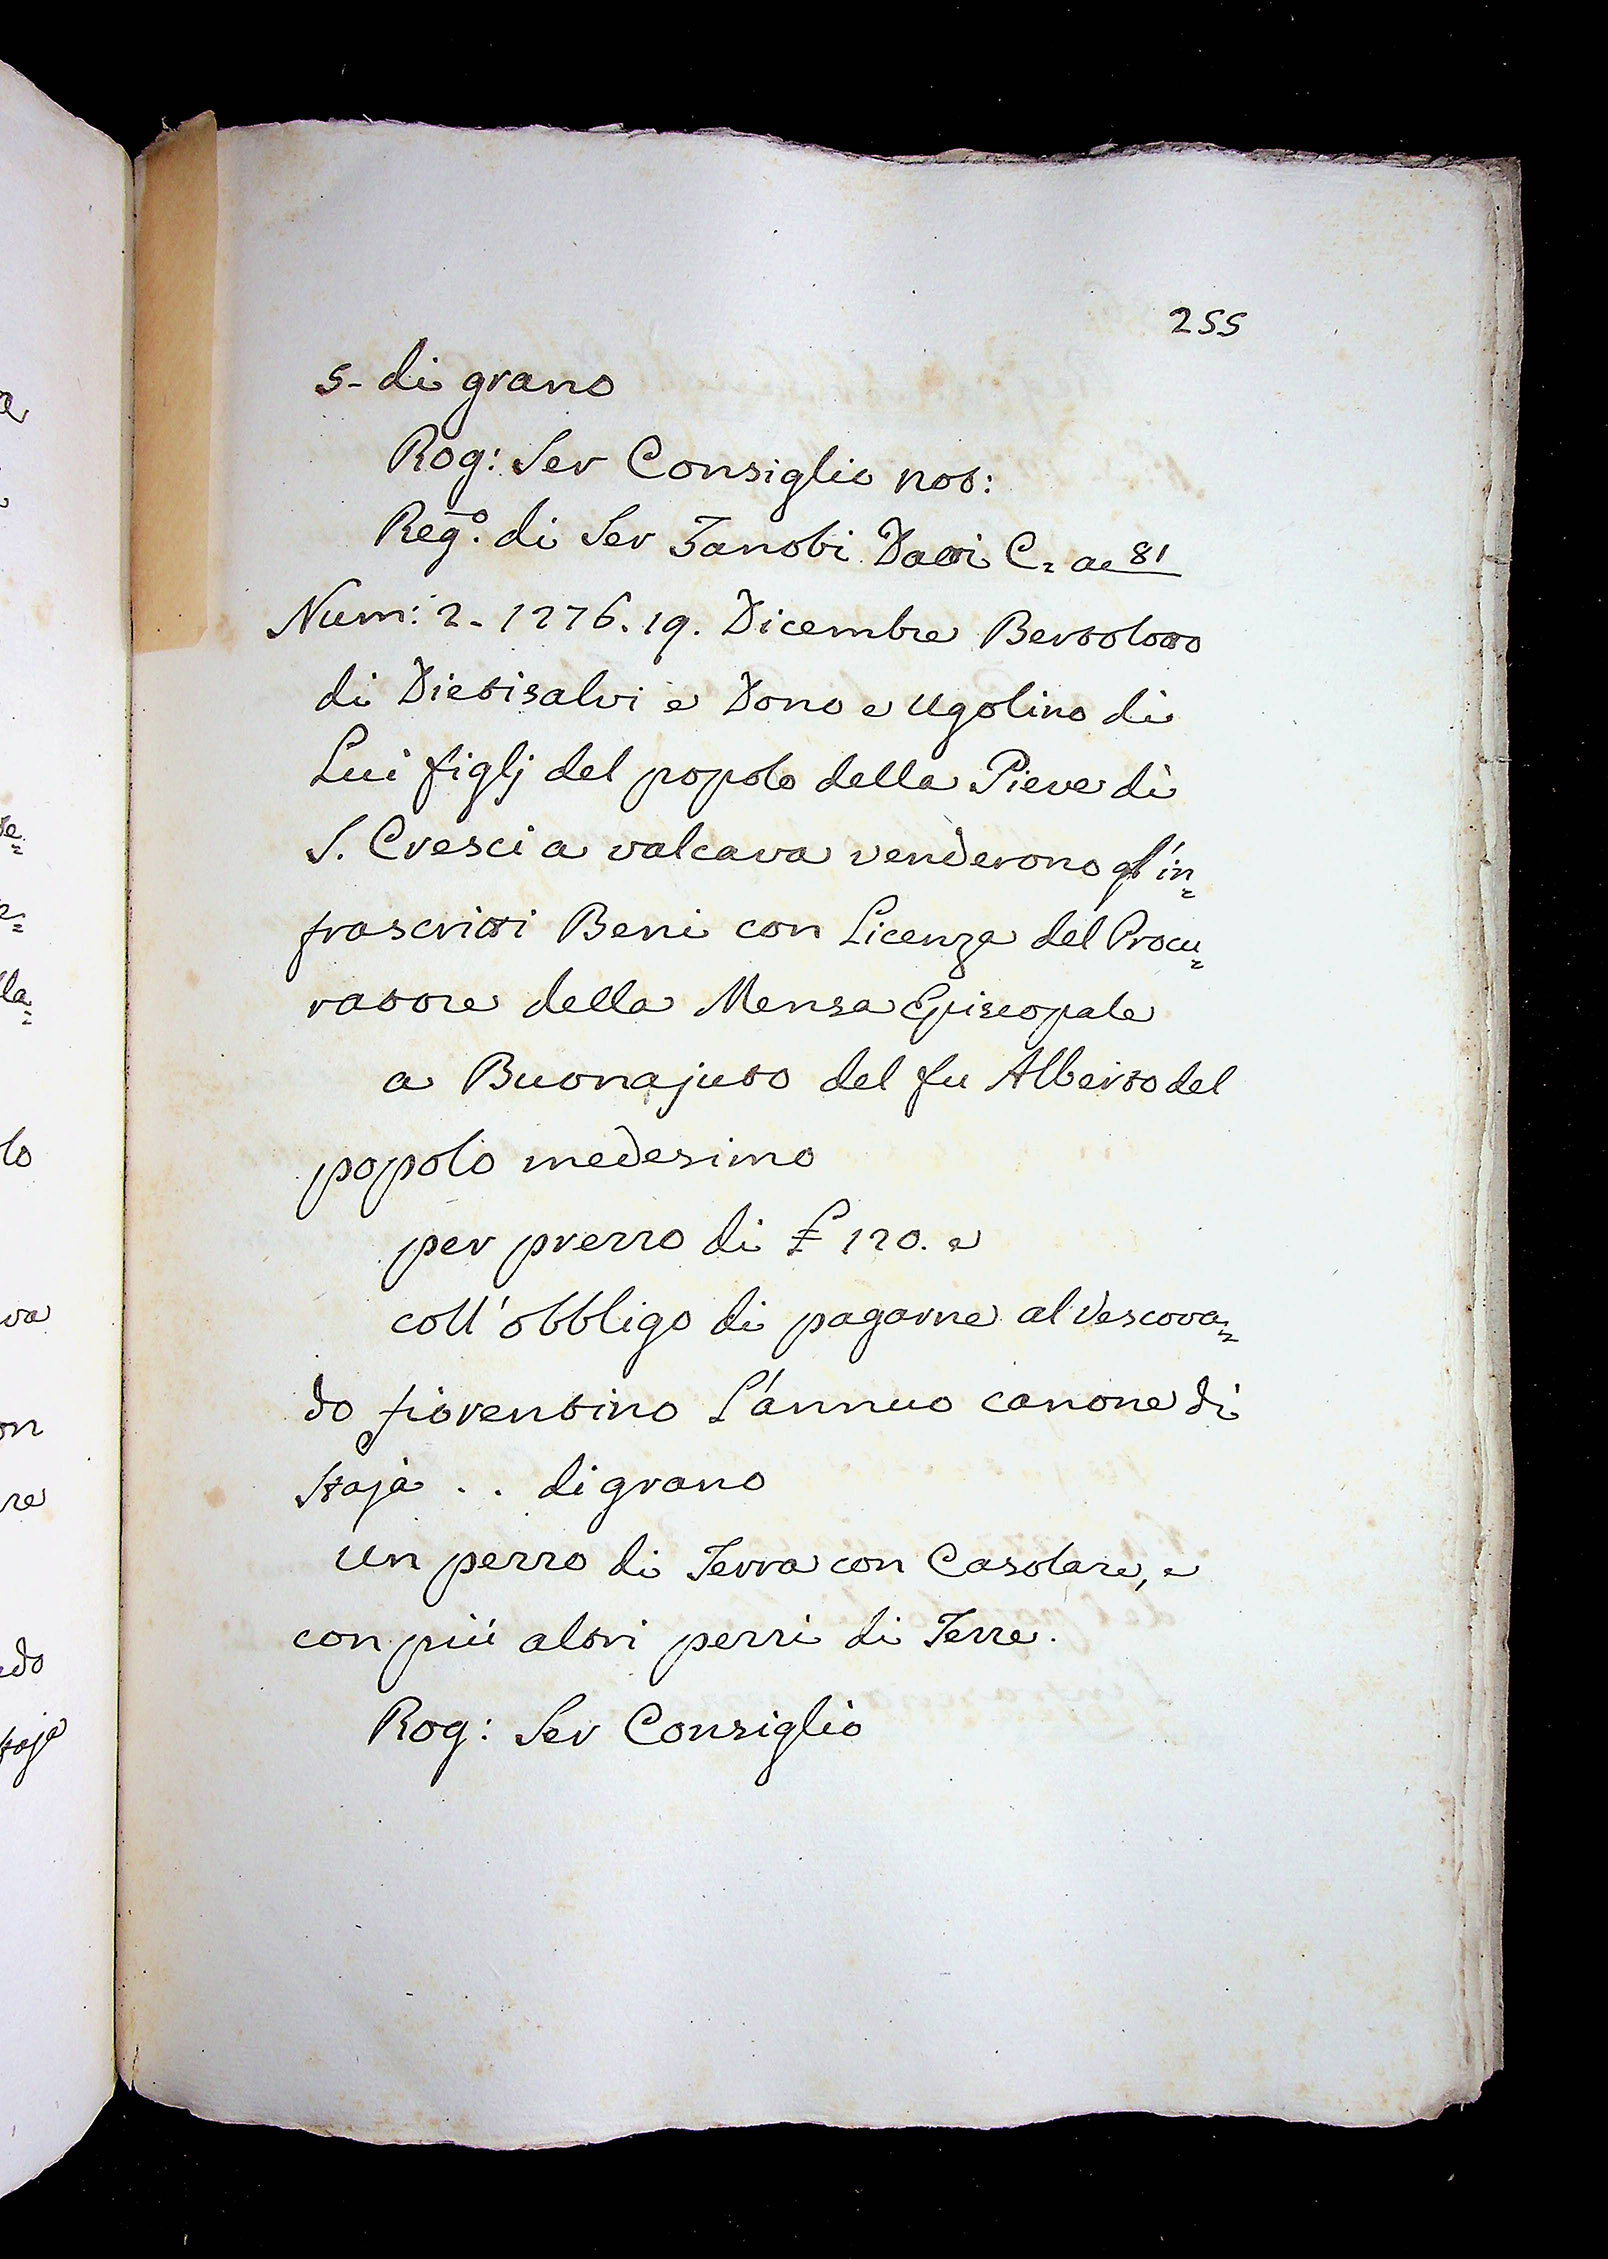 255
5- di grano
Rog: Ser Consiglio not:
Reg.o di Ser Zanobi Datti C. a 81
Num: 2. 1276. 19. Dicembre Bertolotto
di Dietisalvi e Dono e Ugolino di
Lui figlj del popolo della Pieve di
S. Cresci a valcava venderono gl'in=
frascritti Beni con Licenza del Procu=
ratore della Mensa Episcopale
a Buonajuto del fu Alberto del
popolo medesimo
per prezzo di £ 120. e
coll'obbligo di pagarne al Vescova=
do fiorentino L'annuo canone di
staja . . di grano
Un pezzo di Terra con Casolare, e
con più altri pezzi di Terre.
Rog: Ser Consiglio